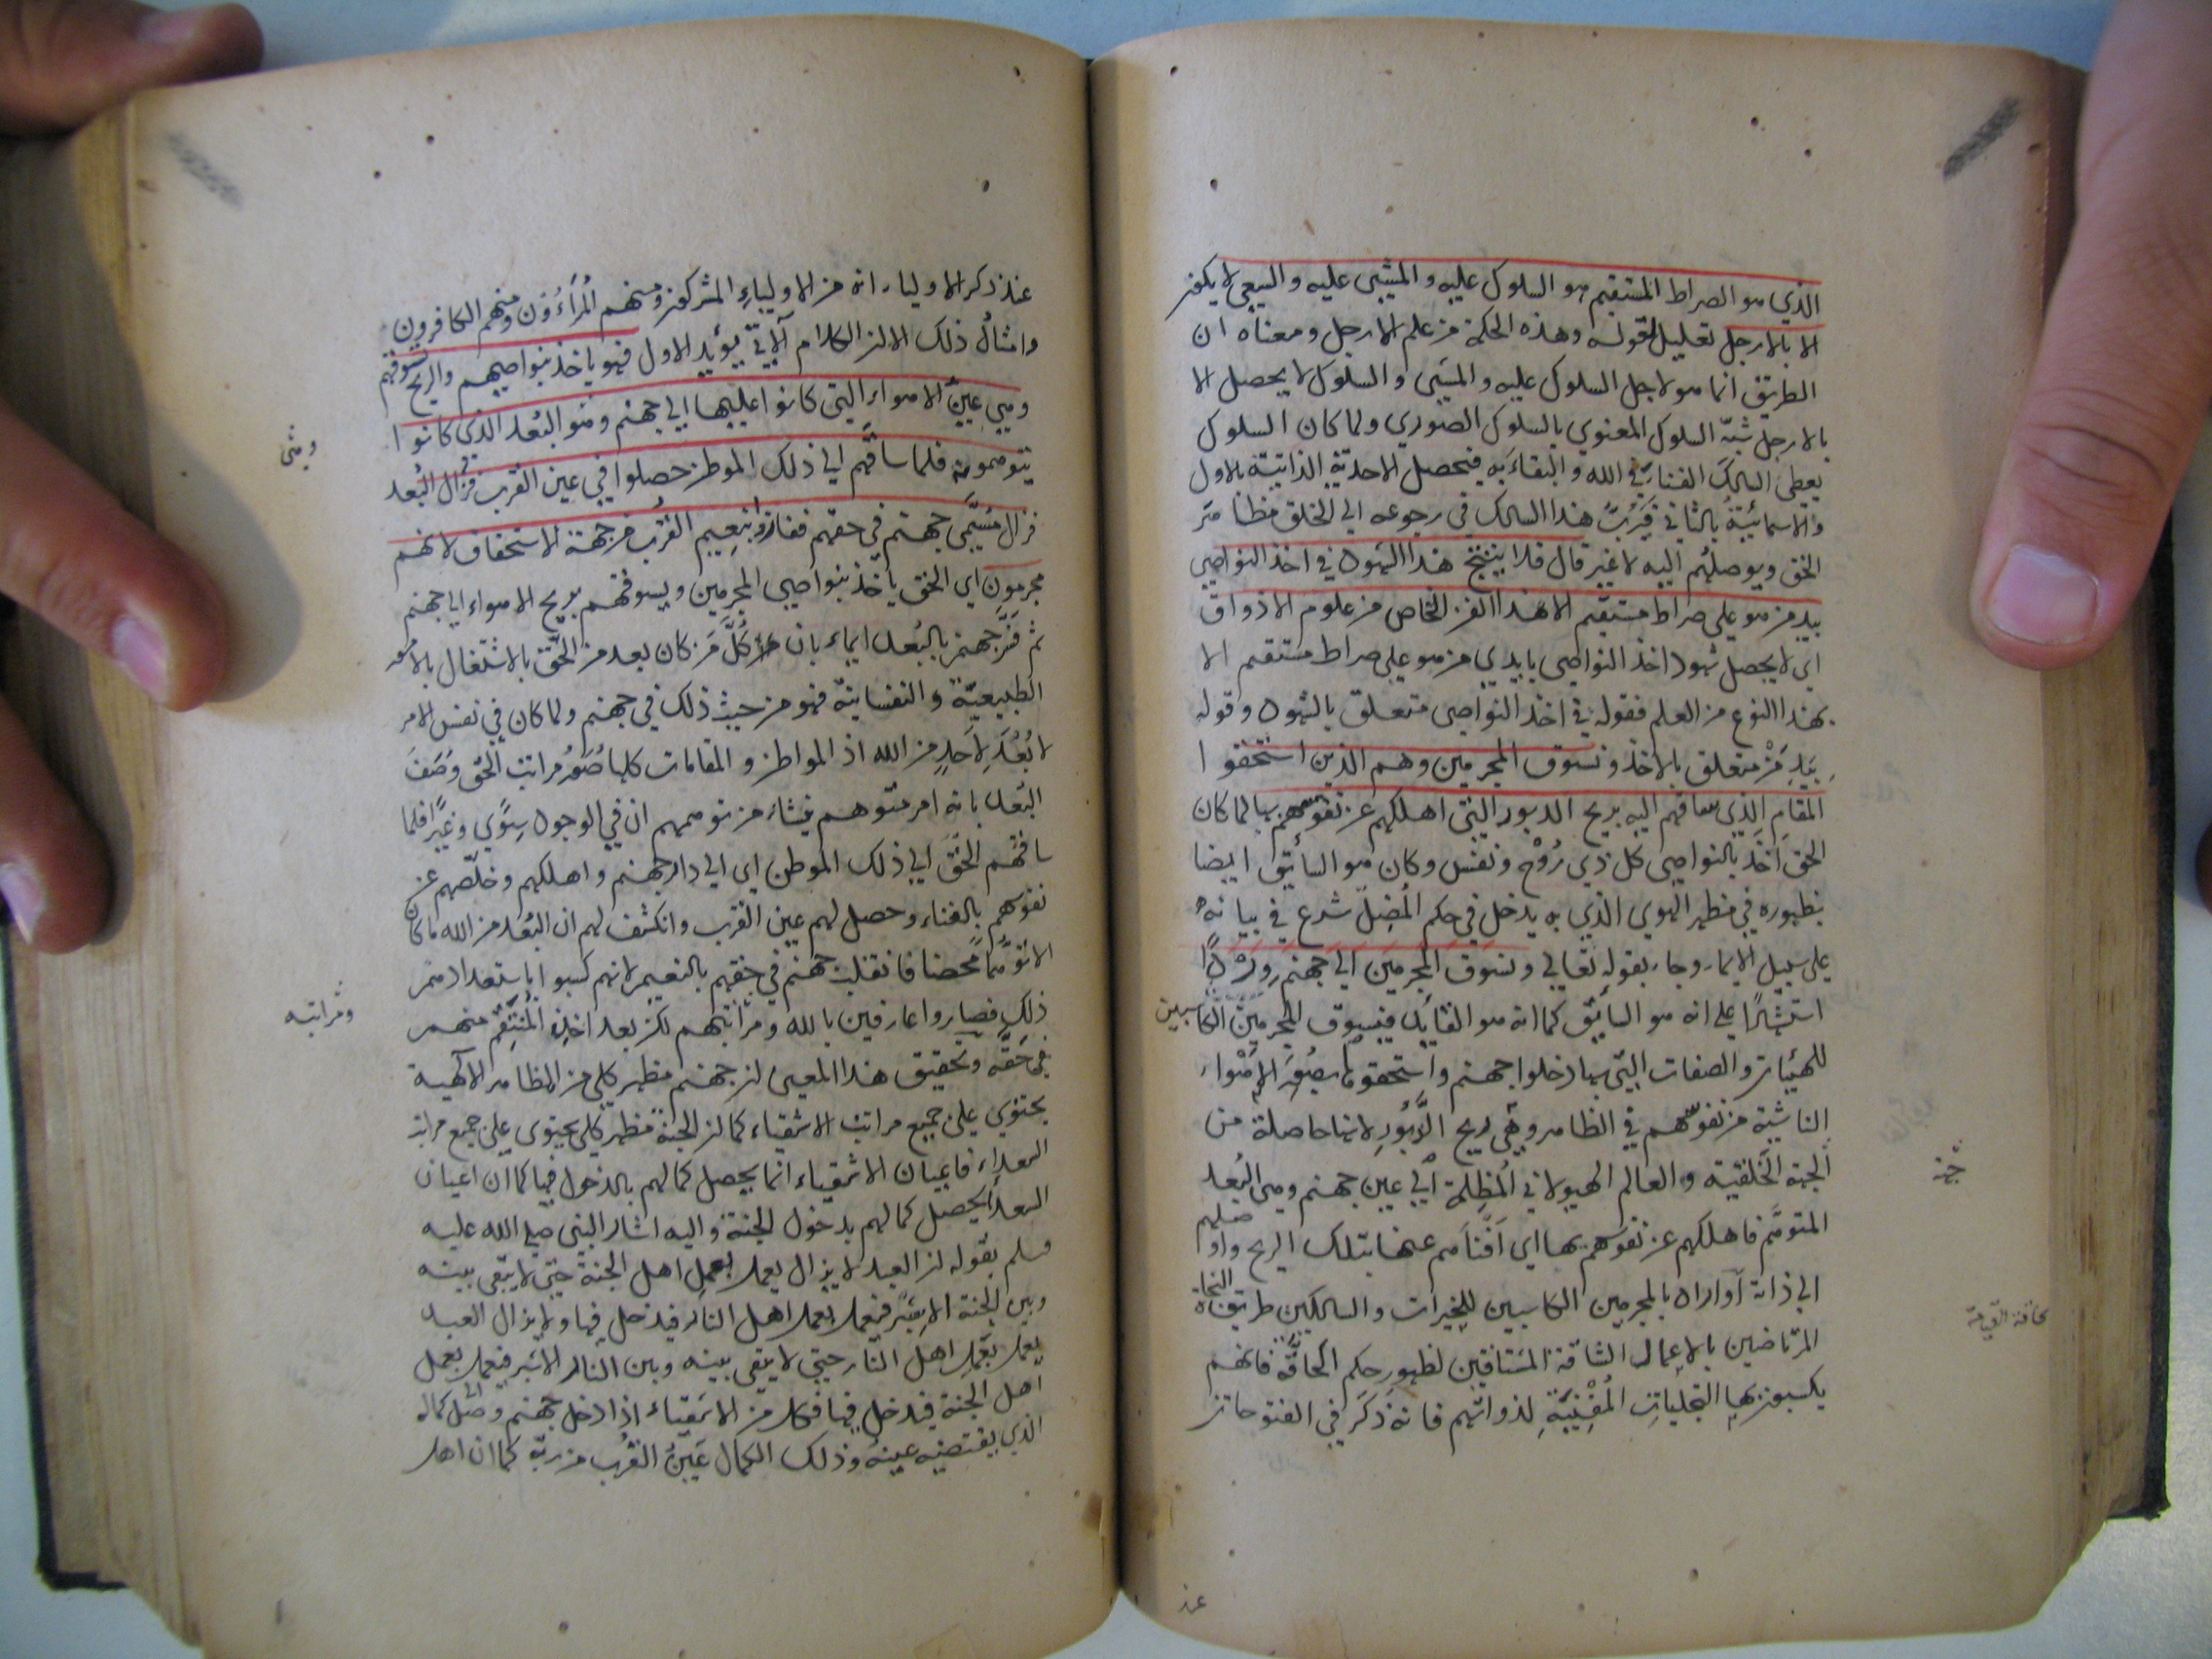 الذي هو الصراط المستقيم هو السلوك عليه والمشي عليه والسعي لا يكون
الا بالارجل تعليل لقوله وهذه الحكمة من علم الارجل ومعناه ان
الطريق انما هو لاجل السلوك عليه والمشى والسلوك لا يحصل الا
بالارجل شبّه السلوك المعنوي بالسلوك الصّوري ولما كان السلوك
يعطى السالك الفناء في الله والبقاء به فتحصل الاحدية الذاتية بالاول
والاسمائيّة بالثاني فيربّ هذا السالك في رجوعه الي الخلق مظاهر
الحق ويوصلهم اليه لا غير قال فلا ينتج هذا الشهود في اخذ النواصي
بيد من هو على صراط مستقيم الا هذا الفن الخاص من علوم الاذواق
اي لا يحصل شهود اخذ النواصي بايدي من هو علي صراط مستقيم الا
بهذا النوع من العلم فقوله في اخذ النواصي متعلق بالشهود وقوله
بِيَدِ مَنْ متعلق بالاخذ ونسوق المجرمين وهم الذين استحقوا
المقام الذي ساقهم اليه بريح الدبور التي اهلكهم عن نفوسهم بها لما كان
الحق اخذ بالنواصي كل ذي رُوْح ونفس وكان هو السائق ايضا
بظهوره في مظهر الهوي الذي به يدخل في حكم المُضِلّ شرع في بيانه
على سبيل الايماء وجاء بقوله تعالي ونسوق المجرمين الي جهنم وِرْدًا
استشهادًا على انه هو السائق كما انه هو القايد فيسوق المجرمين الكاسبين
للهيئات والصفات التي بها دخلوا جهنم واستحقوها بصُوَر الاهْواء
الناشية من نفوسهم في الظاهر وهي ريح الدَّبُورِ لانها حاصلة من
الجهة الخلقية والعالم الهيولاني المُظلمة الي عين جهنم وهى البُعد
المتوهَّم فاهلكهم عن نفوسهم بها اي افناهم عنها بتلك الريح واوصلهم
الي ذاته اواراد بالمجرمين الكاسبين للخيرات والسالكين طريق النجاة
المرتاضين بالاعمال الشاقة المشتاقين لظهور حكم الحاقّة فانهم
يكسبون بها التجلياتِ المُفْنِيَةِ لذواتهم فانه ذكَر في الفتوحات
جهة
عند
عند ذكر الاولياء انه من الاولياءِ المشركون ومنهم المُرَآءُوْن ومنهم الكافرون
وامثالُ ذلك الا ان الكلام الآتي يؤيد الاول فهو ياخذ بنواصيهم والريح تسوقهم
وهي عينُ الاهواء التي كانوا عليها الي جهنم وهو البُعد الذي كانوا
يتوهمونه فلما ساقهم الي ذلك الموطن حصلوا في عين القرب فزال البُعد
فزال مسمَّى جهنم في حقهم ففازوا بنعيم القُرب من جهة الاستحقاق لانهم
مجرمون اي الحق ياخذ بنواصي المجرمين ويسوقهم بريح الاهواء الي جهنم
ثم فَسّر جهنم بالبُعد ايماء بان كُلَّ مَن كان بعد من الحق بالاشتغال بالامور
الطبيعيّة والنفسانية فهو من حيث ذلك في جهنم ولما كان في نفس الامر
لا بُعْدَ لِاَحَدٍ من الله اذ المواطن والمقامات كلها صُوَرُ مراتب الحق وَصَفَ
البُعد بانه امر متوهم ينشاء من توهمهم ان في الوجود سِوًي وغيرًا فلما
ساقهم الحَقّ الي ذلك الموطن اي الي دار جهنم واهلكهم وخلّصهم عن
نفوسهم بالفناء وحصل لهم عين القرب وانكشف لهم ان البُعد من الله ما كان
الا توهّمًا محضا فانقلب جهنم في حقهم بالنعيم لانهم كسبوا باستعدادهم
ذلك فصاروا عارفين بالله ومراتبهم لكن بعد اخذ المُنتَقِم منهم
حَقّه وتحقيق هذا المعنى ان جهنم مظهر كلي من المظاهر الالهية
يحتوي على جميع مراتب الاشقياء كما ان الجنة مظهر كلي يحتوي على جميع مراتب
السعداء فاعيان الاشقياء انما يحصل كمالهم بالدخول فيها كما ان اعيان
السعداء يحصل كمالهم بدخول الجنة واليه اشار النبي صلى الله عليه
وسلم بقوله ان العبد لا يزال يعمل بعمل اهل الجنة حتي لا يبقى بينه
وبين الجنة الا شِبر فيعمل بعمل اهل النار فيدخل فيها ولا يزال العبد
يعمل بعمل اهل النار حتي لا يبقى بينه وبين النار الا شبر فيعمل بعمل
اهل الجنة فيدخل فيها فكل من الاشقياء اذا دخل جهنم وصل الى كماله
الذي يقتضيه عينه وذلك الكمال عَينُ القُرب من ربّه كما ان اهل
ومراتبه